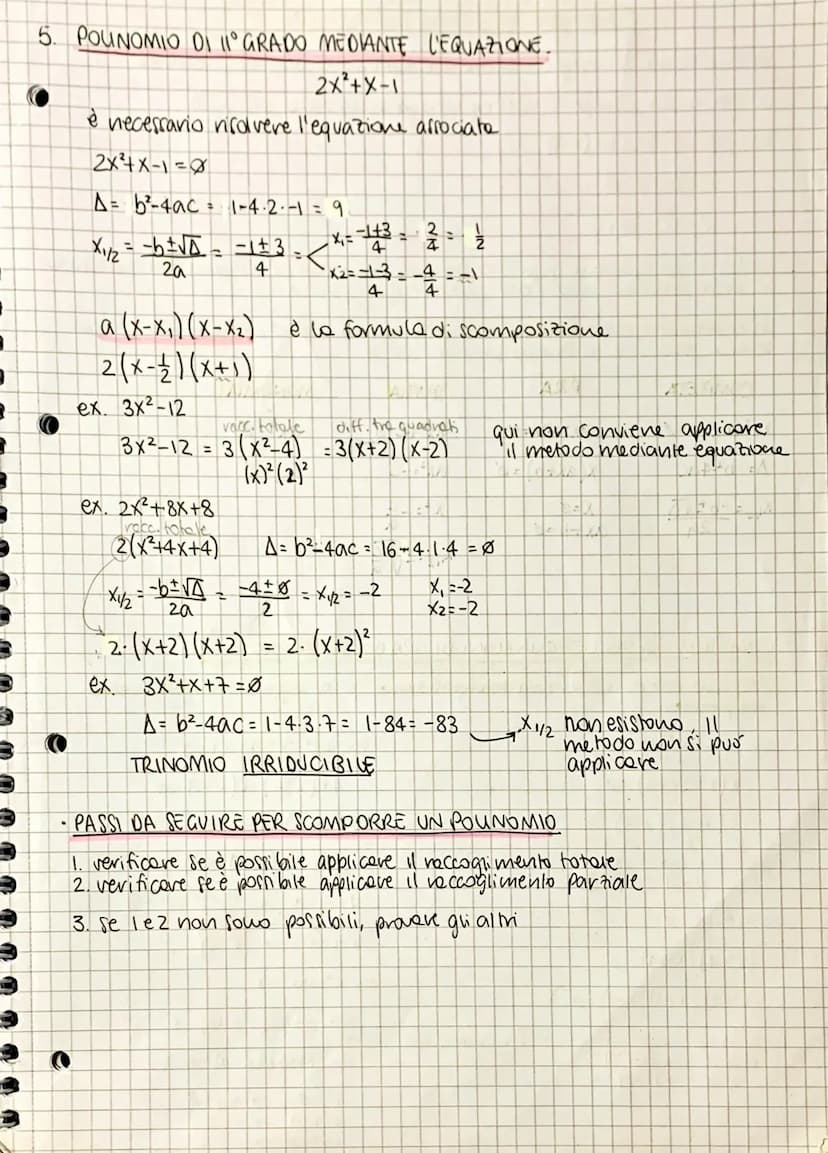 5. POLINOMIO DI II° GRADO MEDIANTE L'EQUAZIONE.
2x²+x-1
è necessario risolvere l'equazione associata
2x²+x-1=∅
Δ= b²-4ac = 1-4·2·-1 = 9
x₁/₂ = -b±√Δ / 2a = -1±3 / 4 = < x₁= -1+3 / 4 = 2/4 = 1/2
x₂= -1-3 / 4 = -4/4 = -1
a(x-x₁)(x-x₂) è la formula di scomposizione
2(x-1/2)(x+1)
ex. 3x²-12
racc. totale diff. tra quadrati
3x²-12 = 3(x²-4) =3(x+2)(x-2) qui non conviene applicare
il metodo mediante equazione
(x)²(2)²
ex. 2x²+8x+8
racc. totale
2(x²+4x+4) Δ= b²-4ac = 16-4·1·4 = ∅
x₁/₂ = -b±√Δ / 2a = -4±∅ / 2 = x₁/₂ = -2 x₁=-2
x₂=-2
2·(x+2)(x+2) = 2·(x+2)²
ex. 3x²+x+7=∅
Δ= b²-4ac = 1-4·3·7= 1-84= -83 → x₁/₂ non esistono, Il
metodo non si può
applicare
TRINOMIO IRRIDUCIBILE
· PASSI DA SEGUIRE PER SCOMPORRE UN POLINOMIO
1. verificare se è possibile applicare il raccoglimento totale
2. verificare se è possibile applicare il raccoglimento parziale
3. se 1 e 2 non sono possibili, provare gli altri